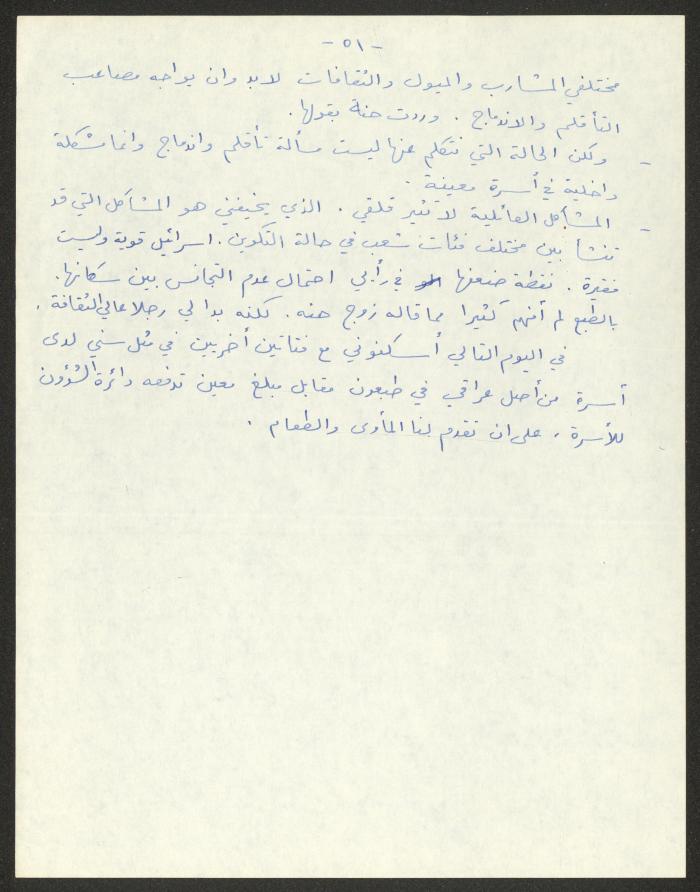 - ٥١ -
مختلفي المشارب والميول والثقافات لابد وان يواجه مصاعب
التأقلم والاندماج . وردت حنة بقولها .
- ولكن الحالة التي نتكلم عنها ليست مسألة تأقلم واندماج وانما مشكلة
داخلية في أسرة معينة .
- المشاكل العائلية لا تثير قلقي . الذي يخيفني هو المشاكل التي قد
تنشأ بين مختلف فئات شعب في حالة التكوين . اسرائيل قوية وليست
فقيرة . نقطة ضعفها في رأيي احتمال عدم التجانس بين سكانها .
بالطبع لم أفهم كثيرا مما قاله زوج حنه . لكنه بدا لي رجلا عالي الثقافة .
في اليوم التالي أسكنوني مع فتاتين أخريين في مثل سني لدى
أسرة من أصل عراقي في طبعون مقابل مبلغ معين تدفعه دائرة الشؤون
للأسرة ، على ان تقدم لنا المأوى والطعام .